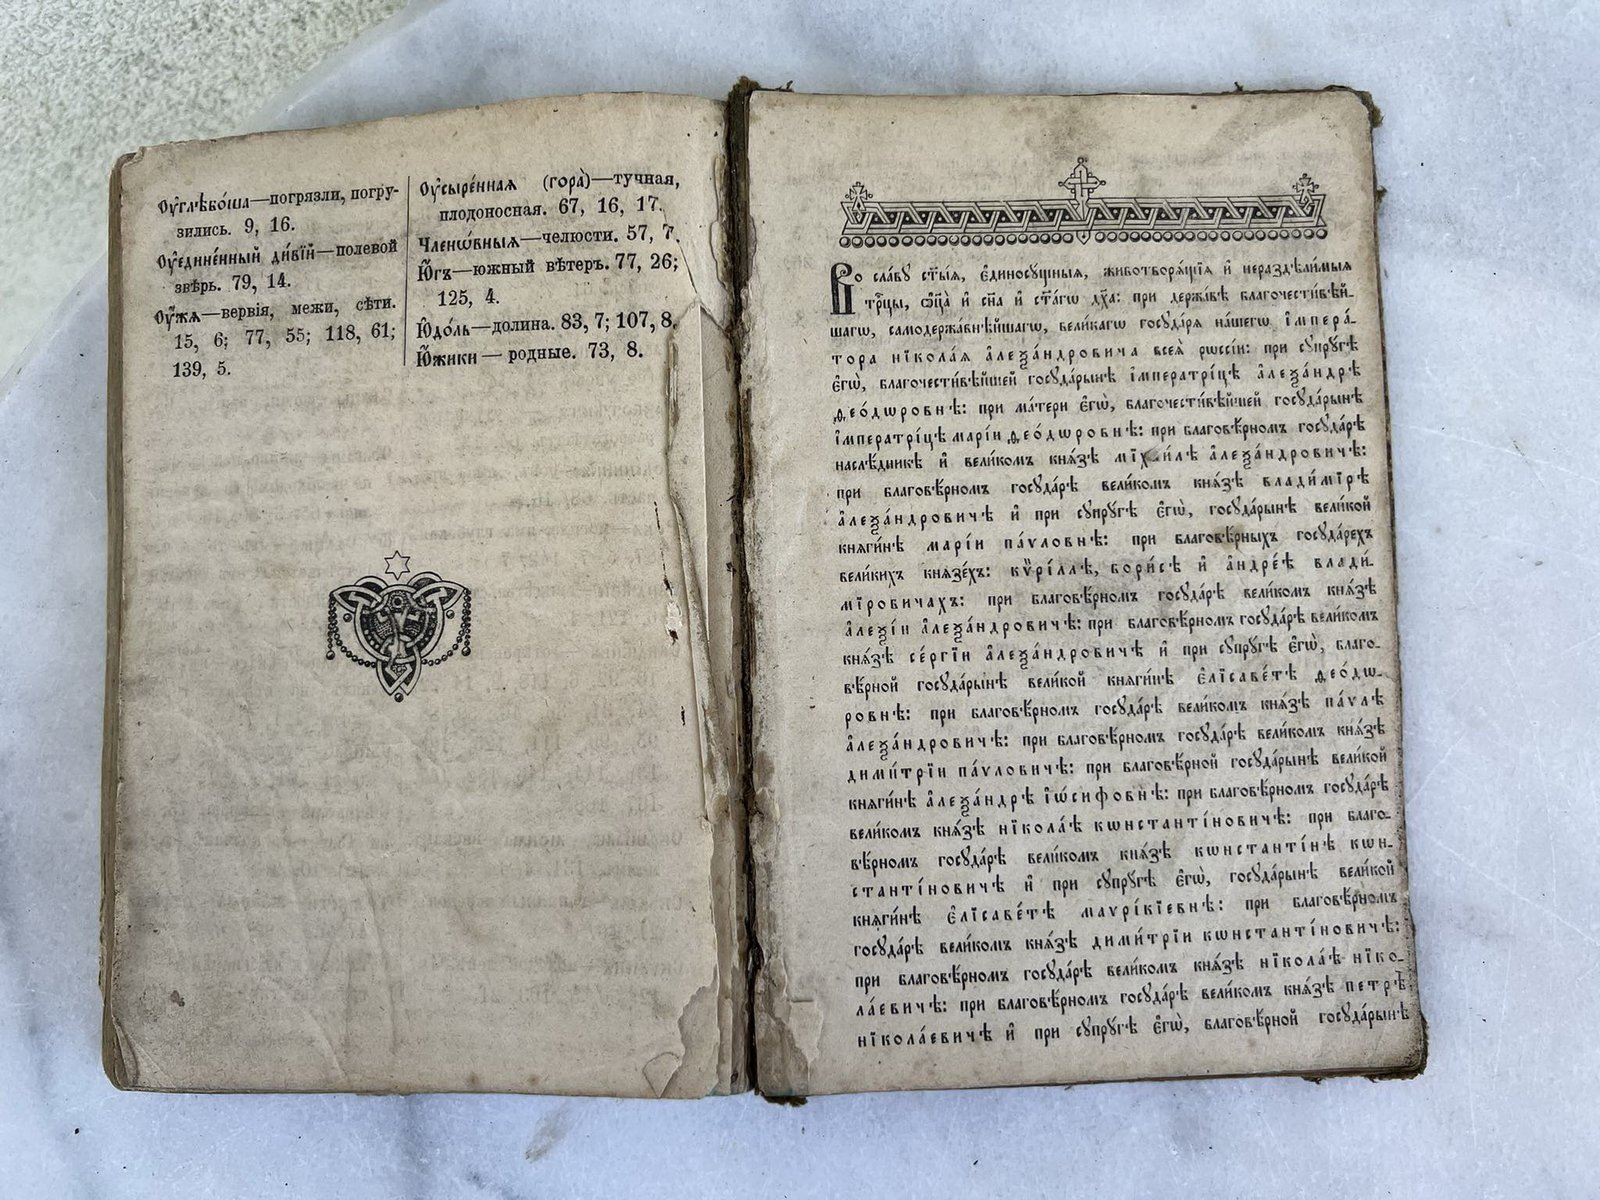 Оу҆глѣбо́ша—погрязли, погру-
зились. 9, 16.
Оу҆едине́нный ди́вїй—полевой
звѣрь. 79, 14.
Оу҆́жѧ—вервія, межи, сѣти.
15, 6; 77, 55; 118, 61;
139, 5.
Оу҆сыре́ннаѧ (гора̀)—тучная,
плодоносная. 67, 16, 17.
Членѡ́вныѧ—челюсти. 57, 7.
Ю҆́гъ—южный вѣтеръ. 77, 26;
125, 4.
Ю҆до́ль—долина. 83, 7; 107, 8.
Ю҆́жики — родные. 73, 8.
Во сла́вꙋ ст҃ы́ѧ, є҆диносꙋ́щныѧ, животворѧ́щїѧ и҆ нераздѣ́лимыѧ
трⷪ҇цы, ѻ҆ц҃а̀ и҆ сн҃а и҆ ст҃а́гѡ дх҃а: при держа́вѣ благочести́вѣй-
шагѡ, самодержа́внѣйшагѡ, вели́кагѡ госꙋда́рѧ на́шегѡ і҆мпера́-
тора нїкола́ѧ а҆леѯа́ндровича всеѧ̀ рѡссі́и: при сꙋпрꙋ́гѣ
є҆гѡ̀, благочести́вѣйшей госꙋда́рынѣ і҆мператрі́цѣ а҆леѯа́ндрѣ
ѳео́дѡровнѣ: при ма́тери є҆гѡ̀, благочести́вѣйшей госꙋда́рынѣ
і҆мператрі́цѣ марі́и ѳео́дѡровнѣ: при благовѣ́рномъ госꙋда́рѣ
наслѣ́дникѣ и҆ вели́комъ кнѧ́зѣ мїхаи́лѣ а҆леѯа́ндровичѣ:
при благовѣ́рномъ госꙋда́рѣ вели́комъ кнѧ́зѣ влади́мїрѣ
а҆леѯа́ндровичѣ и҆ при сꙋпрꙋ́гѣ є҆гѡ̀, госꙋда́рынѣ вели́кой
кнѧги́нѣ марі́и па́ѵловнѣ: при благовѣ́рныхъ госꙋда́рехъ
вели́кихъ кнѧзе́хъ: кѷрі́ллѣ, бори́сѣ и҆ а҆ндре́ѣ влади́-
мїровичахъ: при благовѣ́рномъ госꙋда́рѣ вели́комъ кнѧ́зѣ
а҆леѯі́и а҆леѯа́ндровичѣ: при благовѣ́рномъ госꙋда́рѣ вели́комъ
кнѧ́зѣ се́ргїи а҆леѯа́ндровичѣ и҆ при сꙋпрꙋ́гѣ є҆гѡ̀, благо-
вѣ́рной госꙋда́рынѣ вели́кой кнѧги́нѣ є҆лїсаве́тѣ ѳео́дѡ-
ровнѣ: при благовѣ́рномъ госꙋда́рѣ вели́комъ кнѧ́зѣ па́ѵлѣ
а҆леѯа́ндровичѣ: при благовѣ́рномъ госꙋда́рѣ вели́комъ кнѧ́зѣ
дими́трїи па́ѵловичѣ: при благовѣ́рной госꙋда́рынѣ вели́кой
кнѧги́нѣ а҆леѯа́ндрѣ і҆ѡ́сифовнѣ: при благовѣ́рномъ госꙋда́рѣ
вели́комъ кнѧ́зѣ нїкола́ѣ кѡнстанті́новичѣ: при благо-
вѣ́рномъ госꙋда́рѣ вели́комъ кнѧ́зѣ кѡнстанті́нѣ кѡн-
станті́новичѣ и҆ при сꙋпрꙋ́гѣ є҆гѡ̀, госꙋда́рынѣ вели́кой
кнѧги́нѣ є҆лїсаве́тѣ маѵрі́кїевнѣ: при благовѣ́рномъ
госꙋда́рѣ вели́комъ кнѧ́зѣ дими́трїи кѡнстанті́новичѣ:
при благовѣ́рномъ госꙋда́рѣ вели́комъ кнѧ́зѣ нїкола́ѣ нїко-
ла́евичѣ: при благовѣ́рномъ госꙋда́рѣ вели́комъ кнѧ́зѣ петрѣ̀
нїкола́евичѣ и҆ при сꙋпрꙋ́гѣ є҆гѡ̀, благовѣ́рной госꙋда́рынѣ